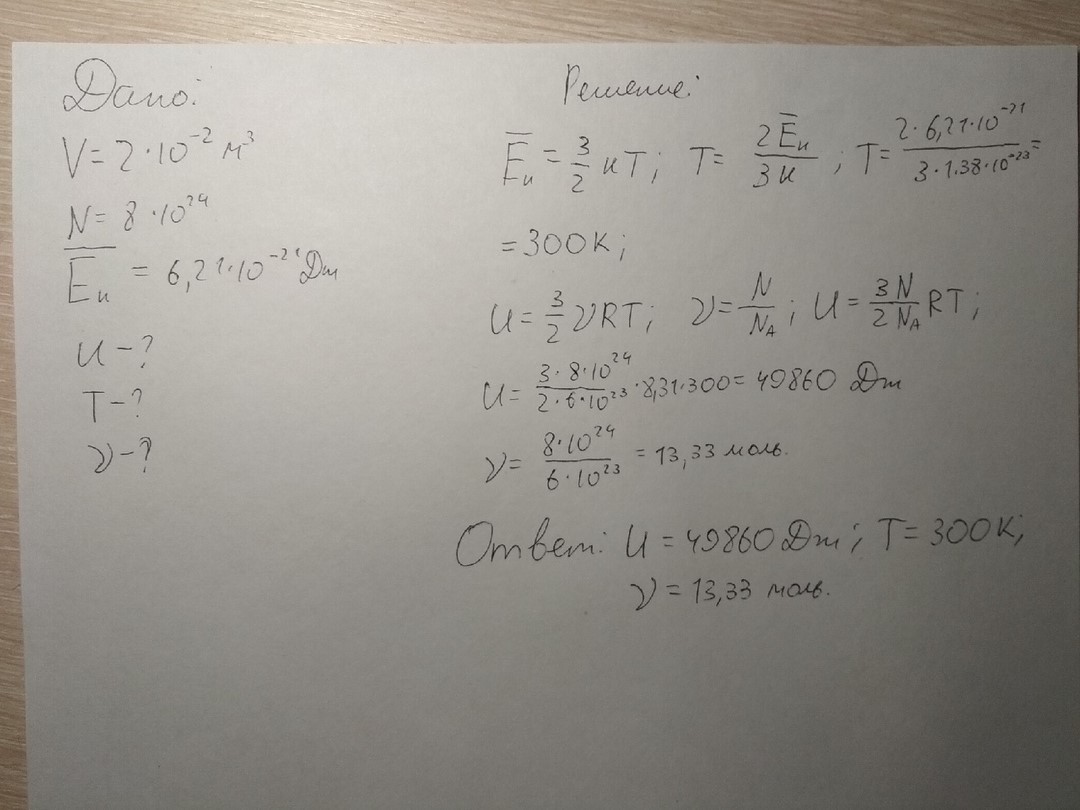 Дано:
V = 2·10⁻² м³
N = 8·10²⁴
E̅к = 6,21·10⁻²¹ Дж
U - ?
T - ?
ν - ?
Решение:
E̅к = 3/2 кT; T = 2E̅к/3к; T = 2·6,21·10⁻²¹/3·1,38·10⁻²³ =
= 300К;
U = 3/2 νRT; ν = N/N_A; U = 3N/2N_A RT;
U = 3·8·10²⁴/2·6·10²³ · 8,31·300 = 49860 Дж
ν = 8·10²⁴/6·10²³ = 13,33 моль.
Ответ: U = 49860 Дж; T = 300К;
ν = 13,33 моль.